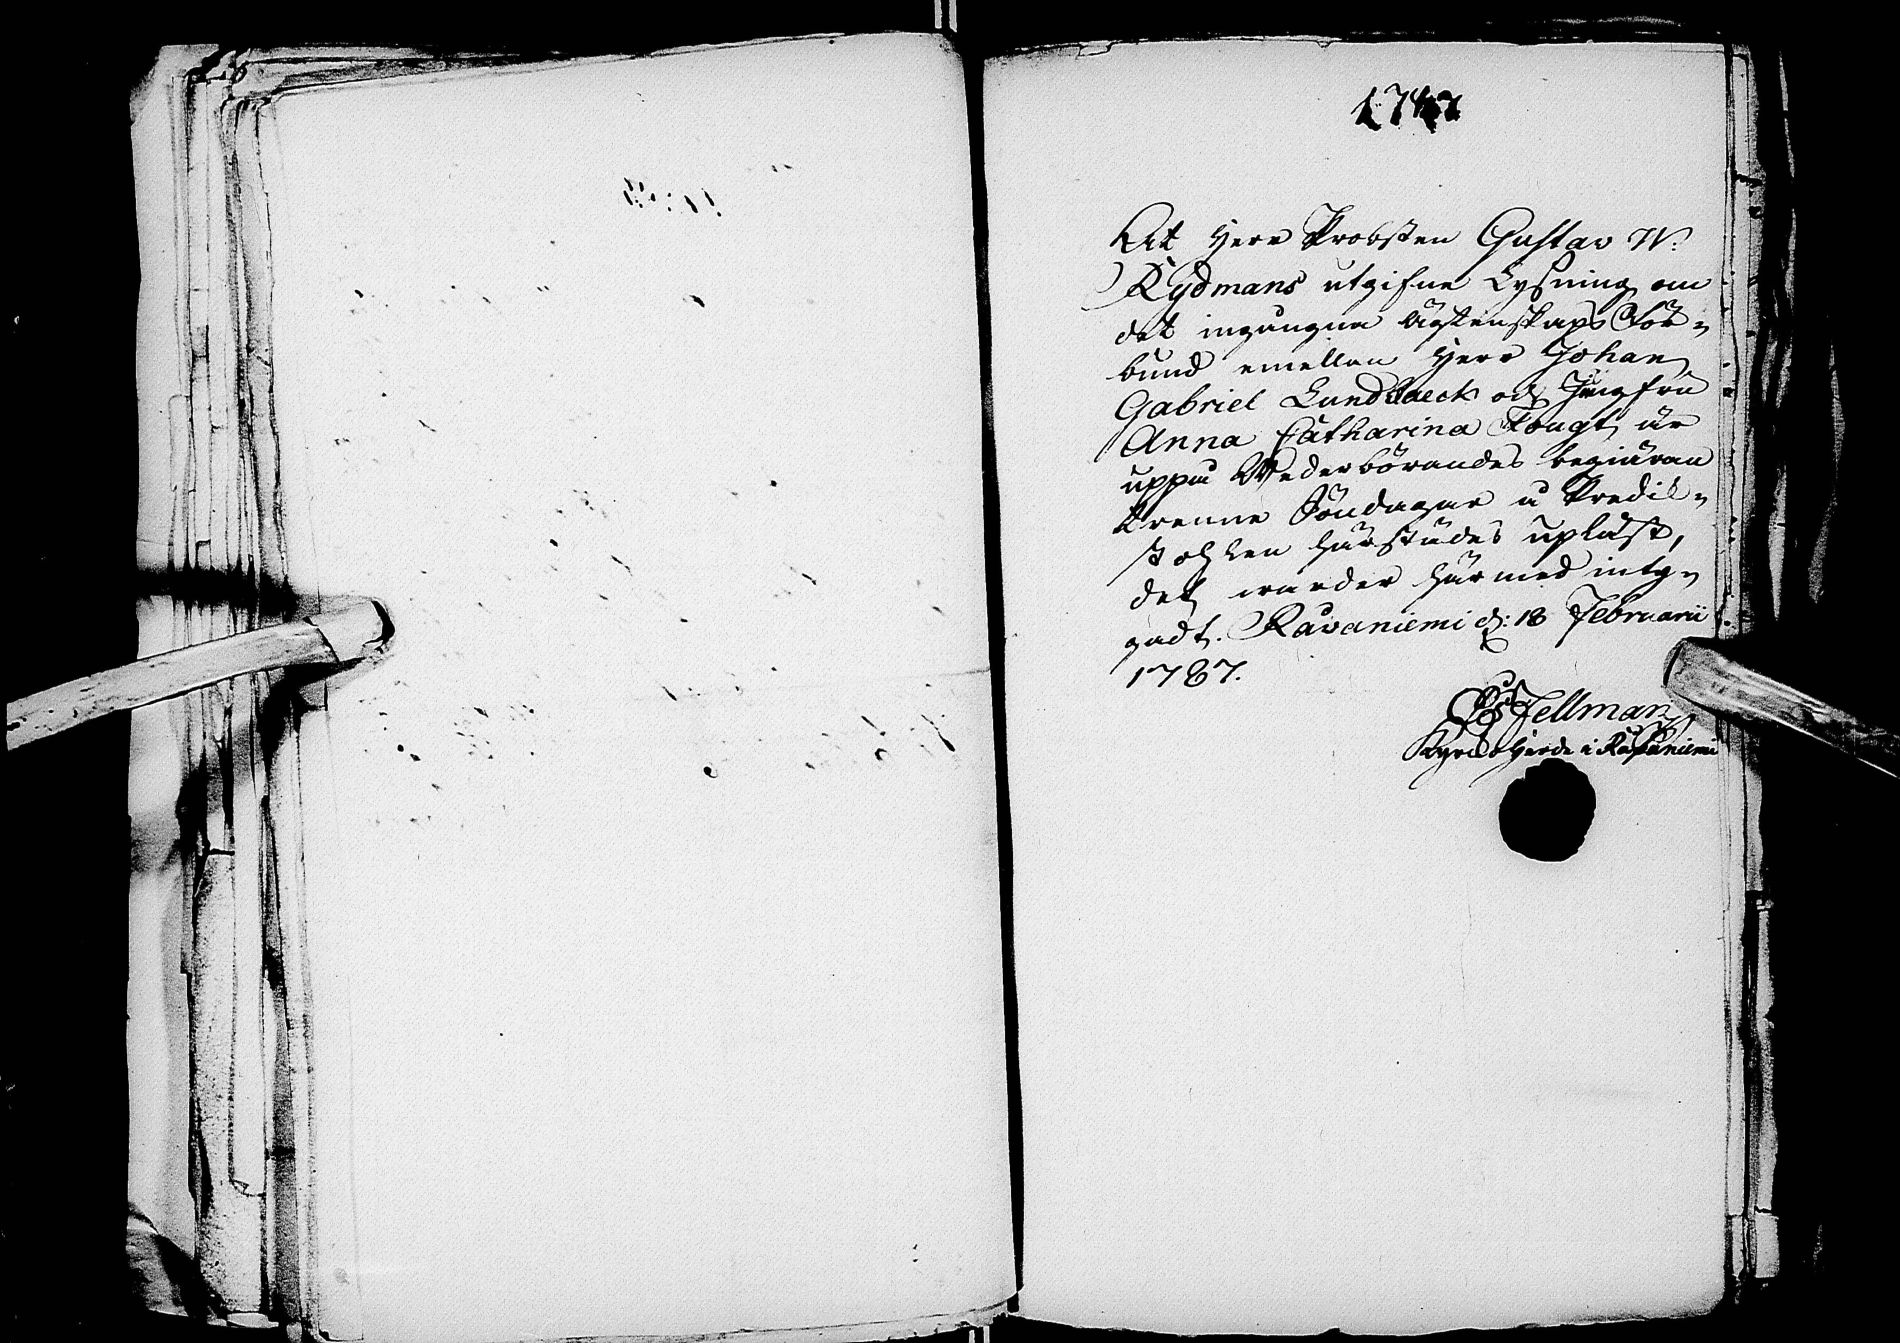 1787
At Herr Probsten Gustav W:
Rydmans utgifne Lysning om
det ingångna ägtenskaps För-
bund emellan Herr Johan
Gabriel Lundbaeck och Jungfru
Anna Catharina Fougt är
uppå Wederbörandes begiäran
trenne Söndagar å Predik-
stohlen härstädes upläst,
det warder härmed inty-
gadt. Ravaniemi d: 18 Februarii
1787.
Fellman
Kyrckoherde i Ravaniemi